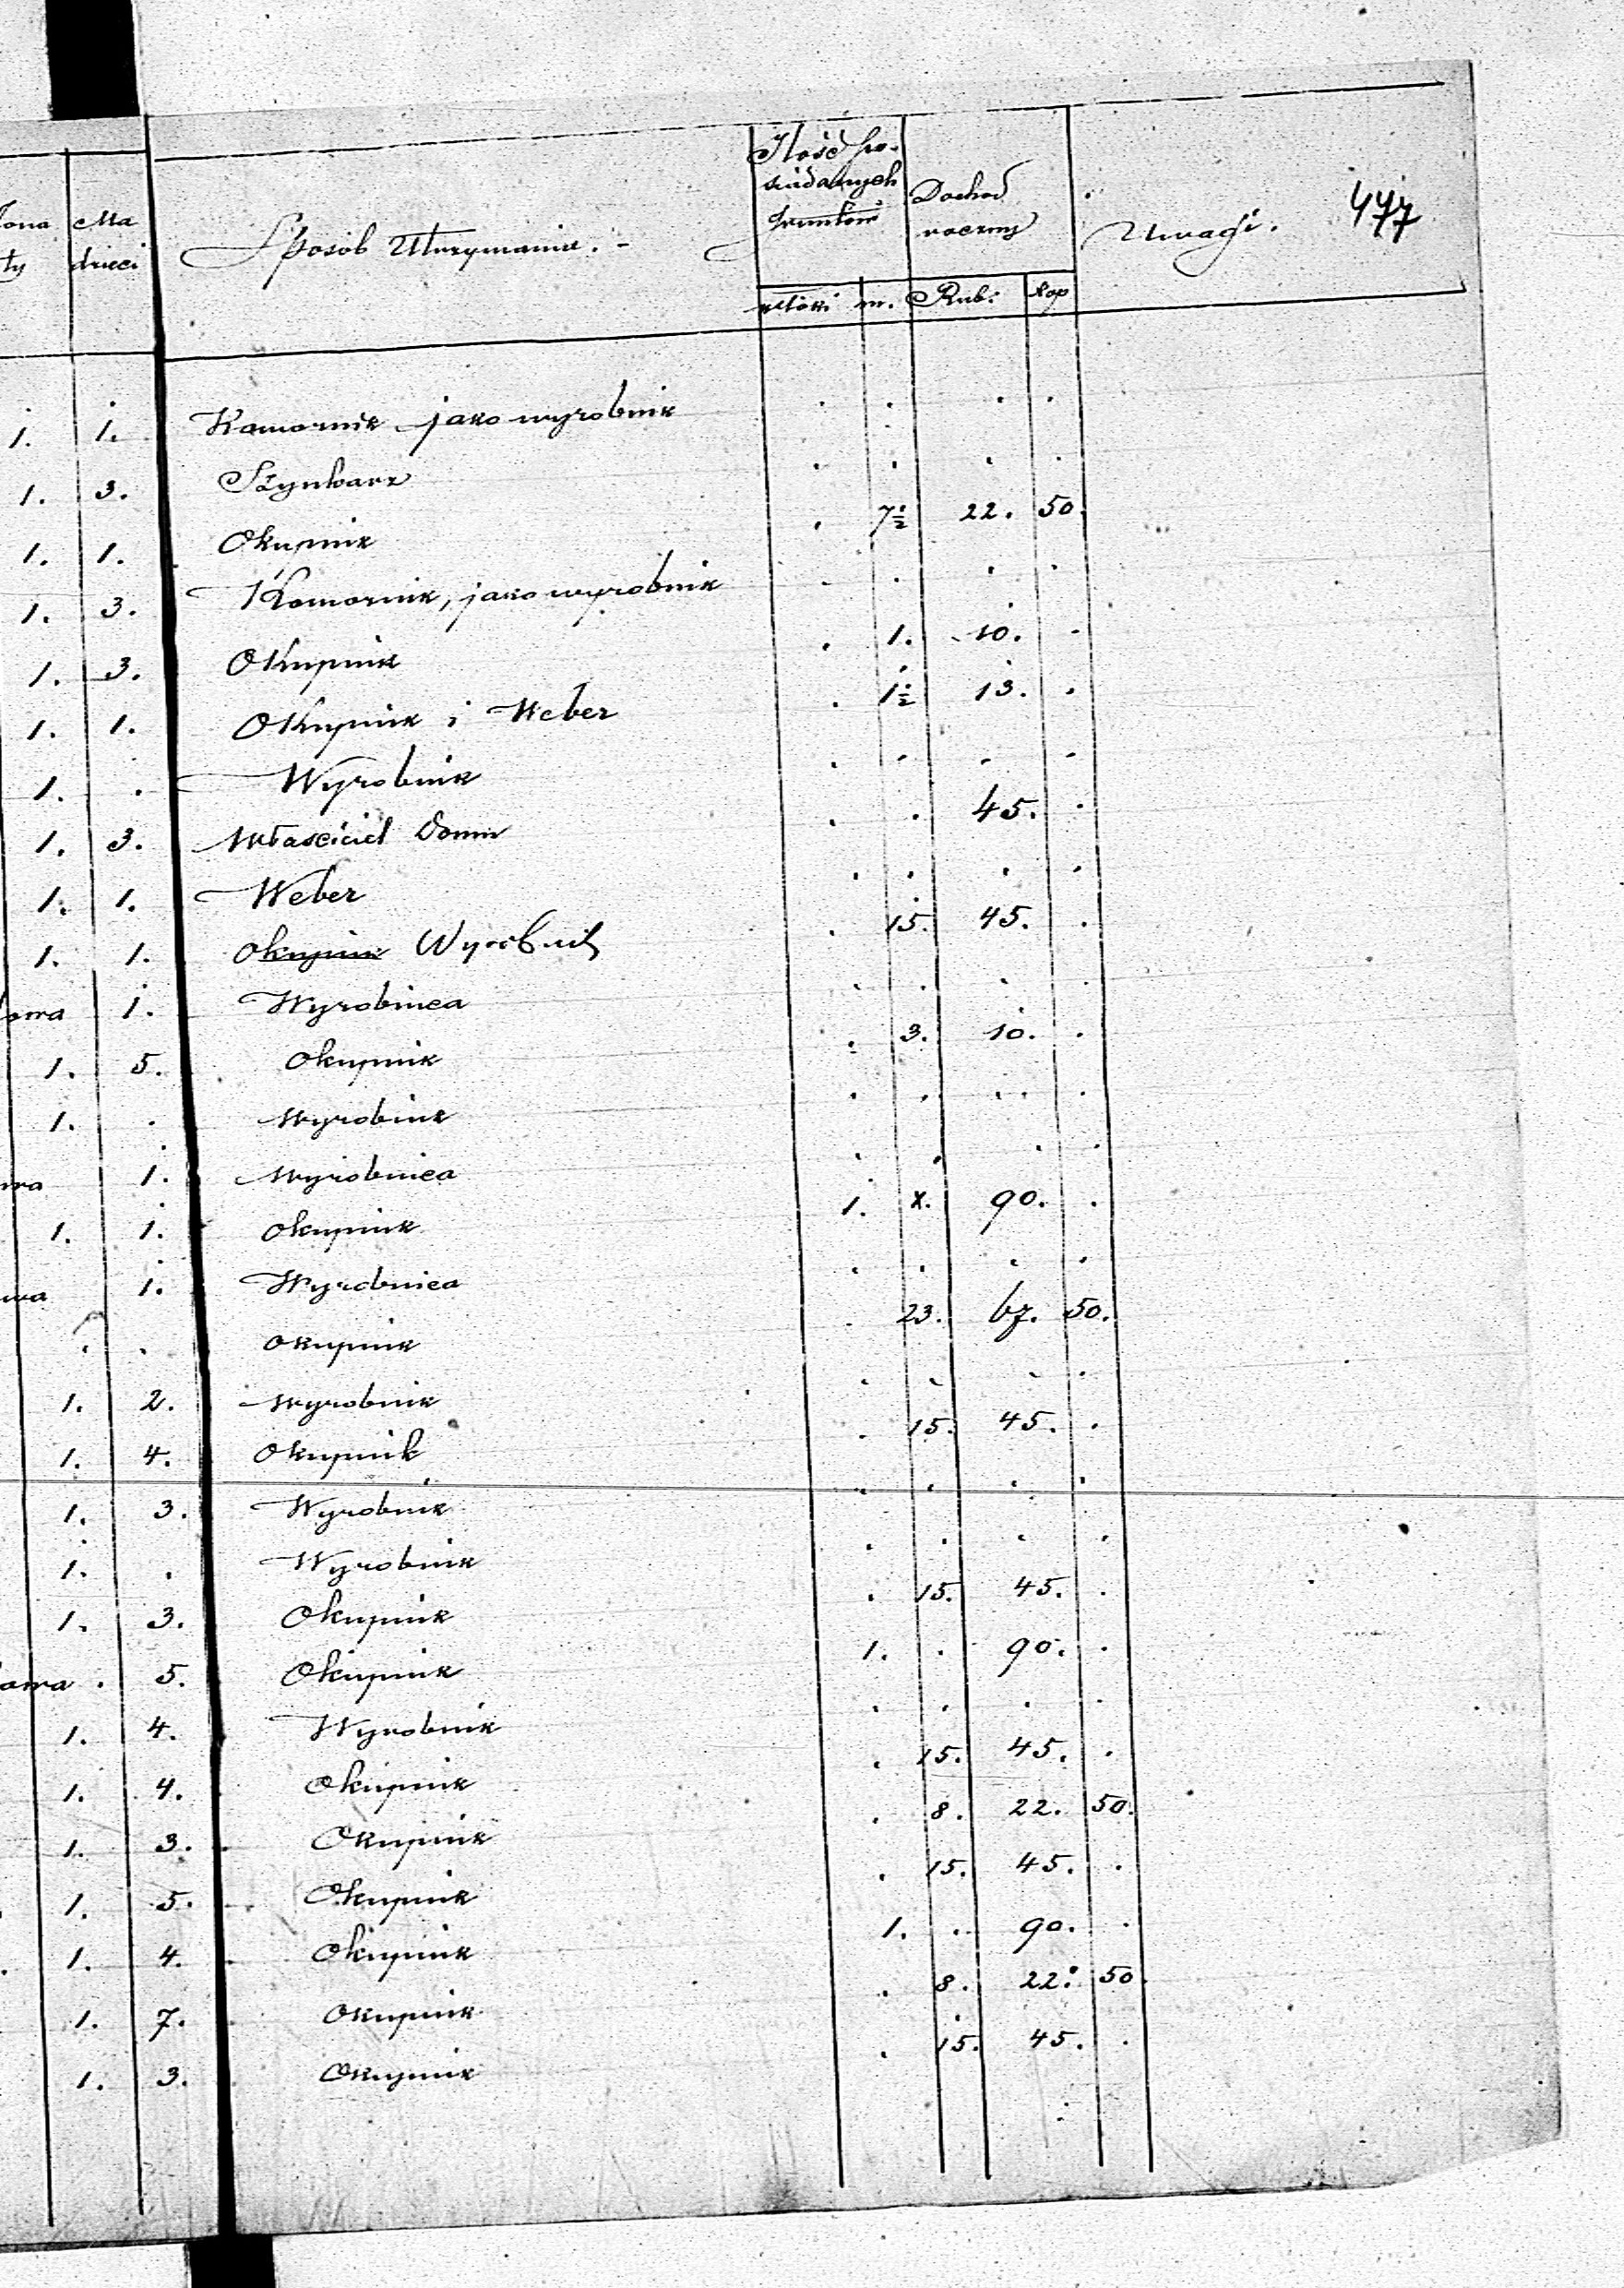 477
Ma dzieci Sposób Utrzymania. - Ilość po- siadanych gruntów Dochod roczny Uwagi.
włóki m. Rub: kop
1. 1. Komornik jako wyrobnik . . . .
1. 3. Szynkarz . . . .
1. 1. Okupnik . 7½ 22. 50.
1. 3. Komornik, jako wyrobnik . . . .
1. 3. Okupnik . 1. 10. .
1. 1. Okupnik i Weber . 1½ 13. .
1. . Wyrobnik . . . .
1. 3. Właściciel Domu . . 45. .
1. 1. Weber . . . .
1. 1. Okupnik Wyrobnik . 15. 45. .
1. Wyrobnica . . . .
1. 5. Okupnik . 3. 10. .
1. . Wyrobnik . . . .
1. Wyrobnica . . . .
1. 1. Okupnik 1. x. 90. .
1. Wyrobnica . . . .
. . Okupnik . 23. 67. 50.
1. 2. Wyrobnik . . . .
1. 4. Okupnik . 15. 45. .
1. 3. Wyrobnik . . . .
1. . Wyrobnik . . . .
1. 3. Okupnik . 15. 45. .
. 5. Okupnik 1. . 90. .
1. 4. Wyrobnik . . . .
1. 4. Okupnik . 15. 45. .
1. 3. Okupnik . 8. 22. 50.
1. 5. Okupnik . 15. 45. .
1. 4. Okupnik 1. . 90. .
1. 7. Okupnik . 8. 22. 50.
1. 3. Okupnik . 15. 45. .